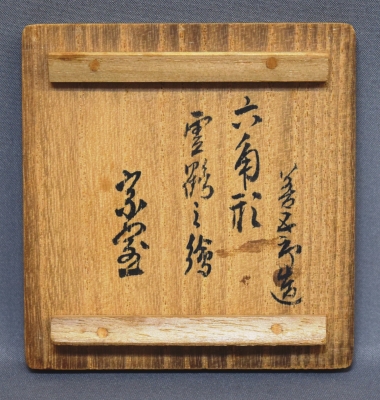 善五郎造
六角形
雲鶴之繪
宗室